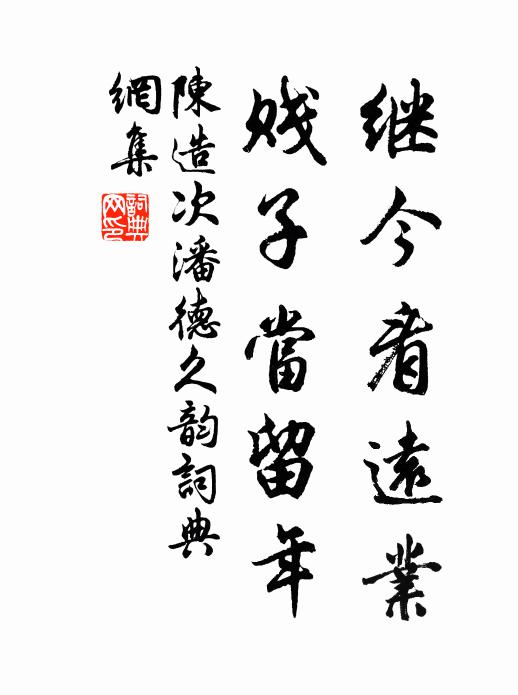 继今看遠業
賤子當留年
陳造次潘德久韵詞典
網集
詞典網印